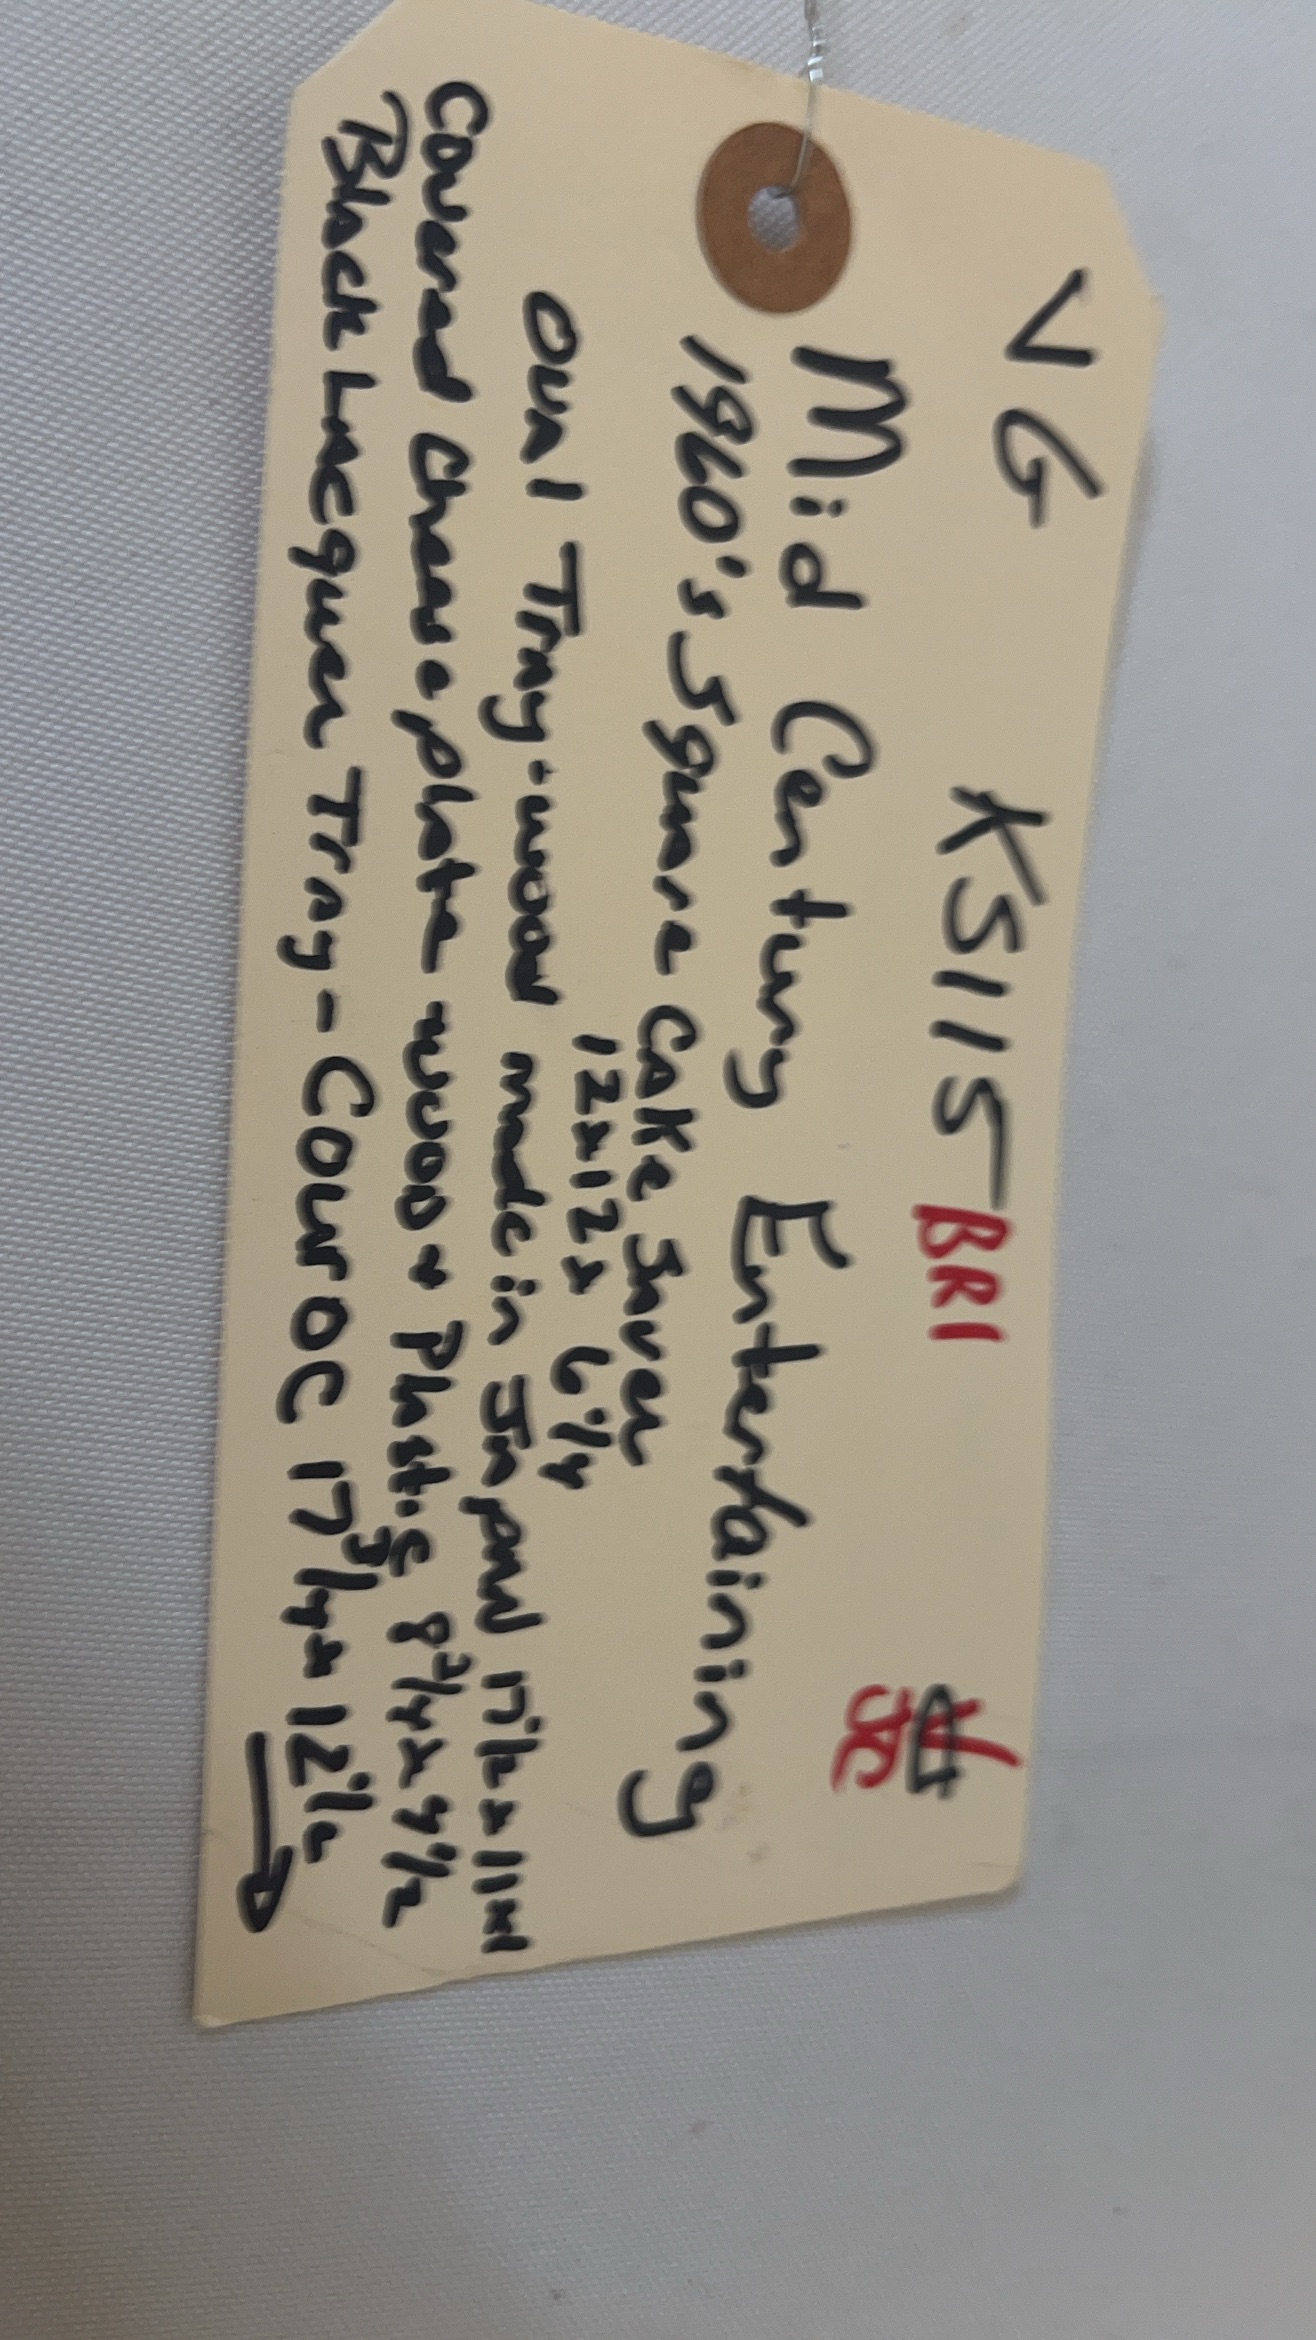 VG KS115 BRI
Mid Century Entertaining
1960's Square Cake Saver
12x12x 6 1/4
Oval Tray - wood made in Japan 17 1/2 x 11 x1
Covered Cheese plate - wood + Plastic 8 3/4 x 9 1/2
Black Lacquer Tray - Couroc 17 3/4 x 12 1/2